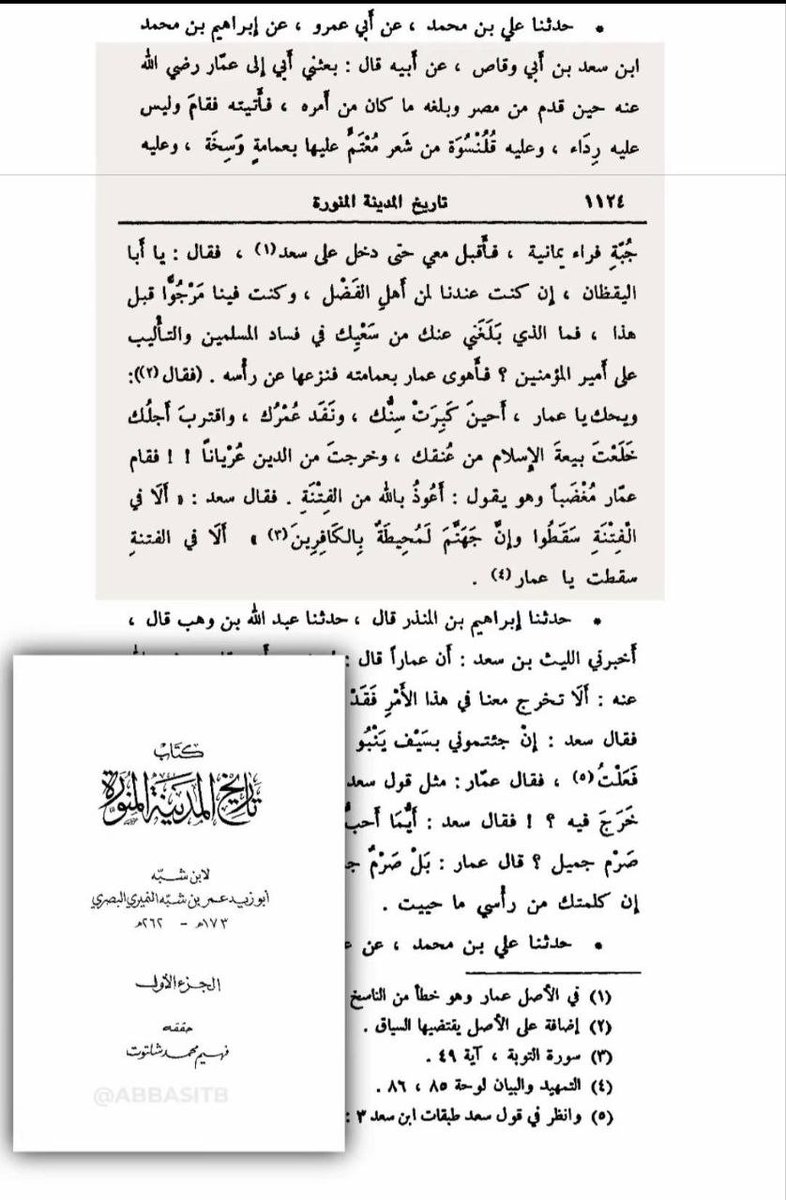 * حدثنا علي بن محمد ، عن أبي عمرو ، عن إبراهيم بن محمد
ابن سعد بن أبي وقاص ، عن أبيه قال : بعثني أبي إلى عمّار رضي الله
عنه حين قدم من مصر وبلغه ما كان من أمره ، فأتيته فقامَ وليس
عليه رِدَاء ، وعليه قُلُنْسُوَة من شَعر مُعْتَمٌّ عليها بعمامةٍ وَسِخَة ، وعليه
١١٢٤ تاريخ المدينة المنورة
جُبّةِ فراء يمانية ، فأقبل معي حتى دخل على سعد(١) ، فقال : يا أبا
اليقظان ، إن كنت عندنا لمن أهلِ الفَضْل ، وكنت فينا مَرْجُوًّا قبل
هذا ، فما الذي بَلَغَني عنك من سَعْيِك في فساد المسلمين والتأليب
على أمير المؤمنين ؟ فأهوى عمار بعمامته فنزعها عن رأسه . (فقال(٢)):
ويحك يا عمار ، أحينَ كَبِرَتْ سِنُّك ، ونَفَد عُمْرُك ، واقتربَ أجلُك
خَلَعْتَ بيعةَ الإسلام من عُنقك ، وخرجتَ من الدين عُرْياناً ! ! فقام
عمّار مُغْضَباً وهو يقول : أعُوذُ بالله من الفِتْنَةِ . فقال سعد : « أَلَا في
الْفِتْنَةِ سَقَطُوا وإنَّ جَهَنَّمَ لَمُحِيطَةٌ بِالكَافِرِينَ(٣) » أَلَا في الفتنةِ
سقطت يا عمار(٤) .
* حدثنا إبراهيم بن المنذر قال ، حدثنا عبد الله بن وهب قال ،
أخبرني الليث بن سعد : أن عماراً قال :
عنه : أَلَا تخرج معنا في هذا الأَمْرِ فَقَدْ
فقال سعد : إنْ جئتموني بسَيْف يَنْبُو
فَعَلْتُ(٥) ، فقال عمّار : مثل قول سعد
خَرَجَ فيه ؟ ! فقال سعد : أيُّمَا أحبُّ
صَرْم جميل ؟ قال عمار : بَلْ صَرْمٌ
إن كلمتك من رأسي ما حييت .
* حدثنا علي بن محمد ، عن
(١) في الأصل عمار وهو خطأ من الناسخ
(٢) إضافة على الأصل يقتضيها السياق .
(٣) سورة التوبة ، آية ٤٩ .
(٤) التمهيد والبيان لوحة ٨٥ ، ٨٦ .
(٥) وانظر في قول سعد طبقات ابن سعد ٣ :
كتاب
تاريخ المدينة المنورة
لابن شبّه
أبو زيد عمر بن شبّه النميري البصري
١٧٣هـ - ٢٦٢هـ
الجزء الأول
حققه
فهيم محمد شلتوت
@ABBASITB